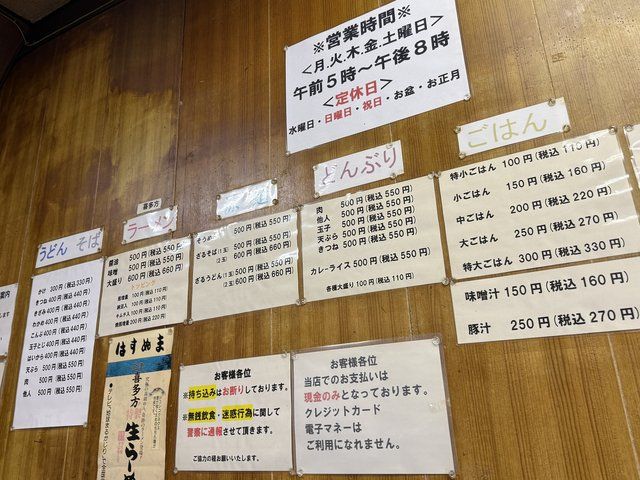 ※営業時間※
＜月.火.木.金.土曜日＞
午前５時～午後８時
＜定休日＞
水曜日・日曜日・祝日・お盆・お正月
うどん そば
かけ 300円(税込330円)
きつね 400円(税込 440円)
きざみ 400円(税込 440円)
わかめ 400円(税込 440円)
こんぶ 400円(税込 440円)
玉子とじ 400円(税込 440円)
はいから 400円(税込 440円)
天ぷら 500円(税込 550円)
肉 500円(税込 550円)
他人 500円(税込 550円)
喜多方
ラーメン
醤油 500円(税込 550円)
味噌 500円(税込 550円)
大盛り 600円(税込 660円)
トッピング
500円(税込 550円)
ざるそば(1玉) 500円(税込 550円)
(2玉) 600円(税込 660円)
ざるうどん(1玉) 500円(税込 550円)
(2玉) 600円(税込 660円)
どんぶり
肉 500円(税込 550円)
他人 500円(税込 550円)
玉子 500円(税込 550円)
天ぷら 500円(税込 550円)
きつね 500円(税込 550円)
カレーライス 500円(税込 550円)
各種大盛り 100円(税込 110円)
ごはん
特小ごはん 100円(税込 110円)
小ごはん 150円(税込 160円)
中ごはん 200円(税込 220円)
大ごはん 250円(税込 270円)
特大ごはん 300円(税込 330円)
味噌汁 150円(税込 160円)
豚汁 250円(税込 270円)
はすぬま
喜多方
生らーめ
お客様各位
※持ち込みはお断りしております。
※無銭飲食・迷惑行為に関して
警察に通報させて頂きます。
ご協力の程お願いいたします。
お客様各位
当店でのお支払いは
現金のみとなっております。
クレジットカード
電子マネーは
ご利用になれません。